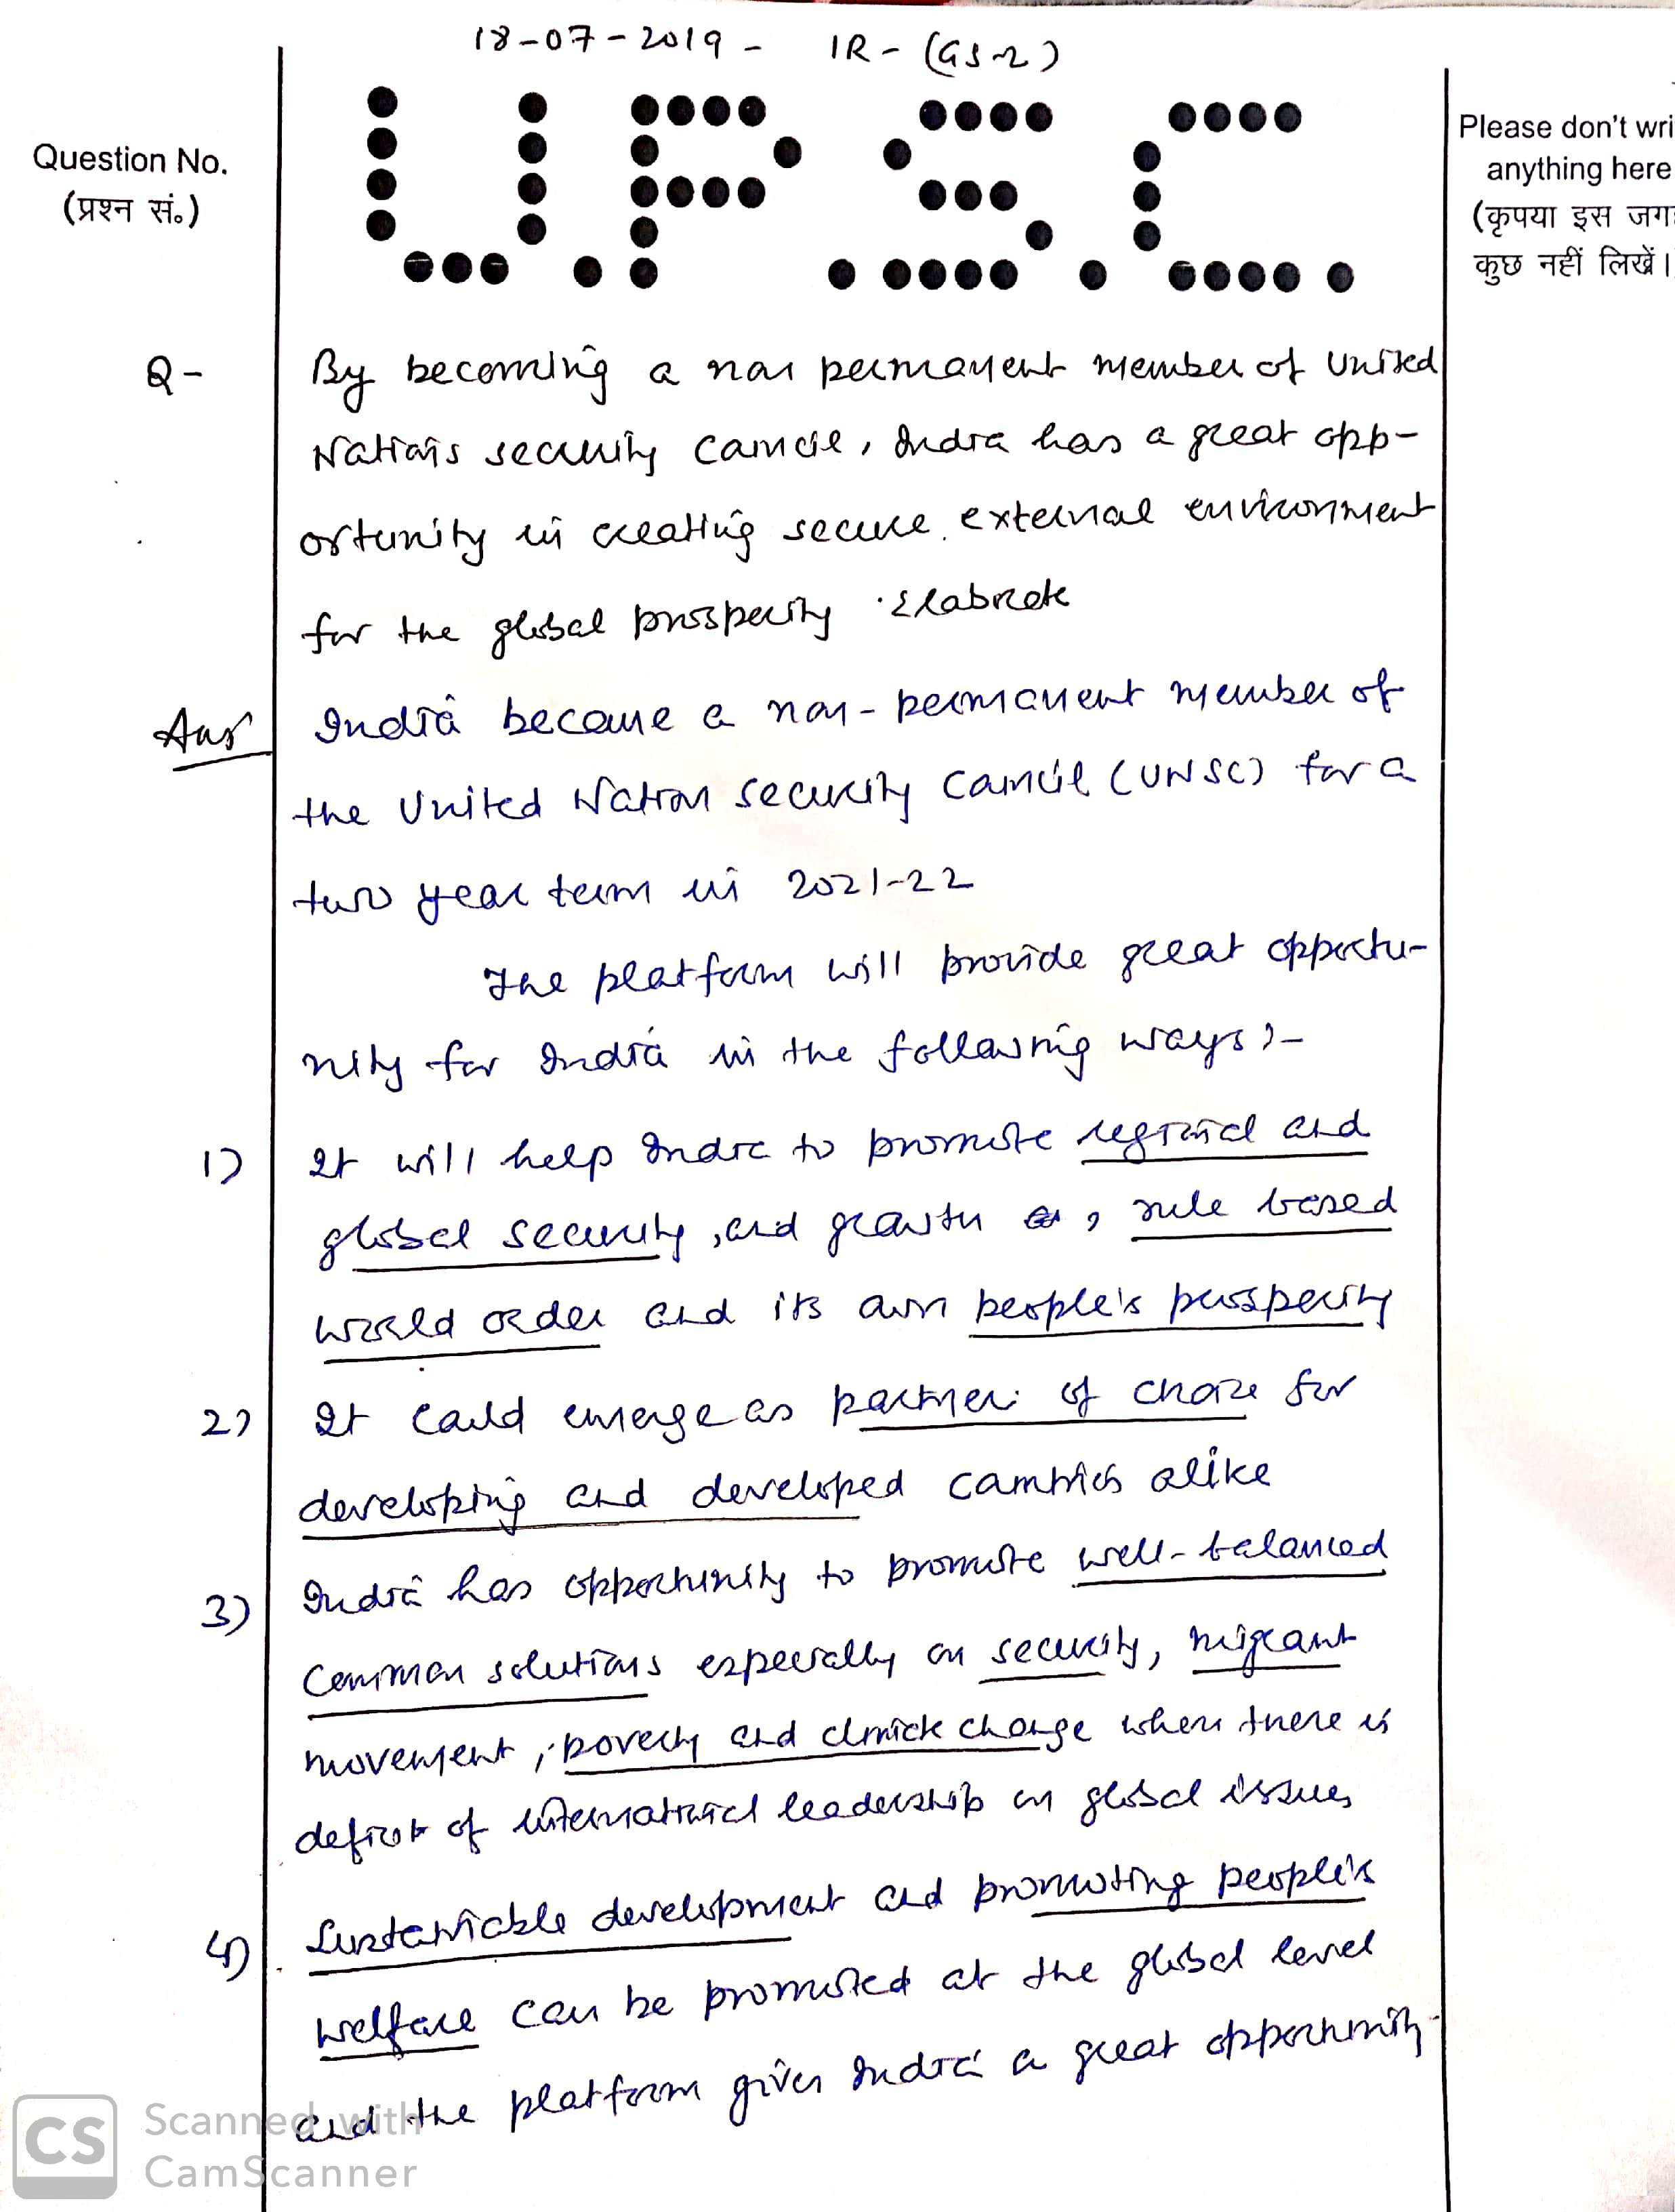 18-07-2019 - IR - (GS-2)
U.P.S.C.
Question No.
(प्रश्न सं.)
Please don't wri
anything here
(कृपया इस जगह
कुछ नहीं लिखें।
Q- By becoming a non permanent member of United
Nations security Council, India has a great opp-
ortunity in creating secure external environment
for the global prosperity. Elabrate
Ans India became a non-permanent member of
the United Nation security Council (UNSC) for a
two year term in 2021-22
The platform will provide great opportu-
nity for India in the following ways :-
1) It will help India to promote regional and
global security, and growth, rule based
world order and its own people's prosperity
2) It could emerge as partner of choice for
developing and developed countries alike
3) India has opportunity to promote well-balanced
common solutions especially on security, migrant
movement, poverty and climate change when there is
deficit of international leadership on global issues
4) Sustainable development and promoting people's
welfare can be promoted at the global level
and the platform gives India a great opportunity
CS Scanned with
CamScanner